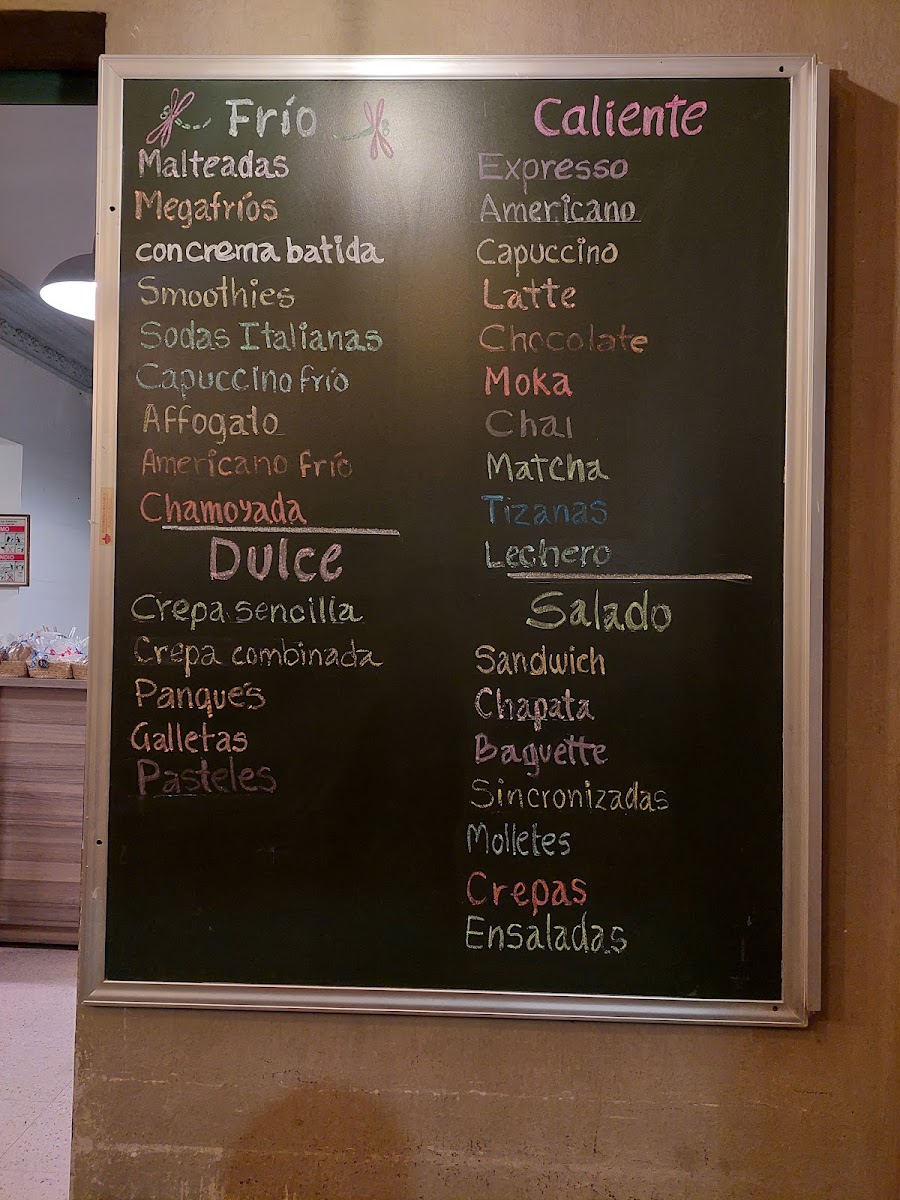 Frío
Malteadas
Megafríos
con crema batida
Smoothies
Sodas Italianas
Capuccino frío
Affogato
Americano frío
Chamoyada
Dulce
Crepa sencilla
Crepa combinada
Panqués
Galletas
Pasteles
Caliente
Expresso
Americano
Capuccino
Latte
Chocolate
Moka
Chai
Matcha
Tizanas
Lechero
Salado
Sandwich
Chapata
Baguette
Sincronizadas
Molletes
Crepas
Ensaladas